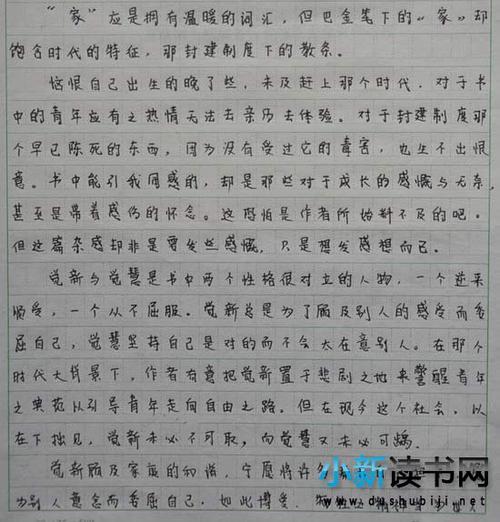 “家”应是拥有温暖的词汇，但巴金笔下的“家”却
饱含时代的特征，那封建制度下的教条。
恼恨自己出生的晚了些，未及赶上那个时代，对于书
中的青年应有之热情无法去亲历去体验。对于封建制度那
个早已陈死的东西，因为没有受过它的毒害，也生不出恨
意。书中能引我同感的，却是那些对于成长的感慨与无奈，
甚至是带着感伤的怀念。这恐怕是作者所始料不及的吧。
但这篇杂感却非是要发些感慨，只是想发感想而已。
觉新与觉慧是书中两个性格很对立的人物，一个逆来
顺受，一个从不屈服。觉新总是为了顾及别人的感受而委
屈自己，觉慧坚持自己是对的而不会太在意别人。在那个
时代大背景下，作者有意把觉新置于悲剧之地来警醒青年
之典范以引导青年走向自由之路。但在现今这个社会，以
在下拙见，觉新未必不可取，而觉慧又未必可搞。
觉新顾及家庭的和谐，宁愿将许多
为别人意念而委屈自己，如此博爱，
小新读书网
www.dushubiji.net